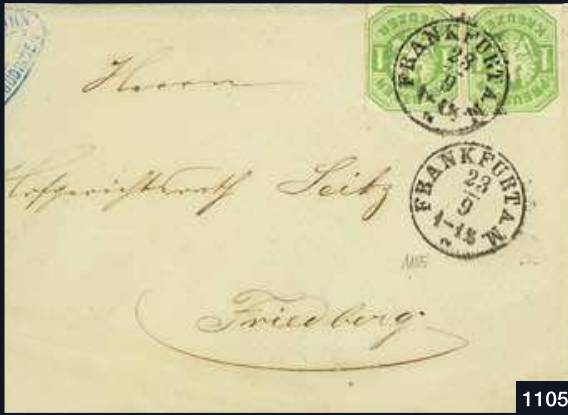 1 KREUZER
1 KREUZER
FRANKFURT A.M.
23
9
1-1½
Herrn
Hofgerichtsrath Seitz
FRANKFURT A.M.
23
9
1-1½
1105
Friedberg.
1105